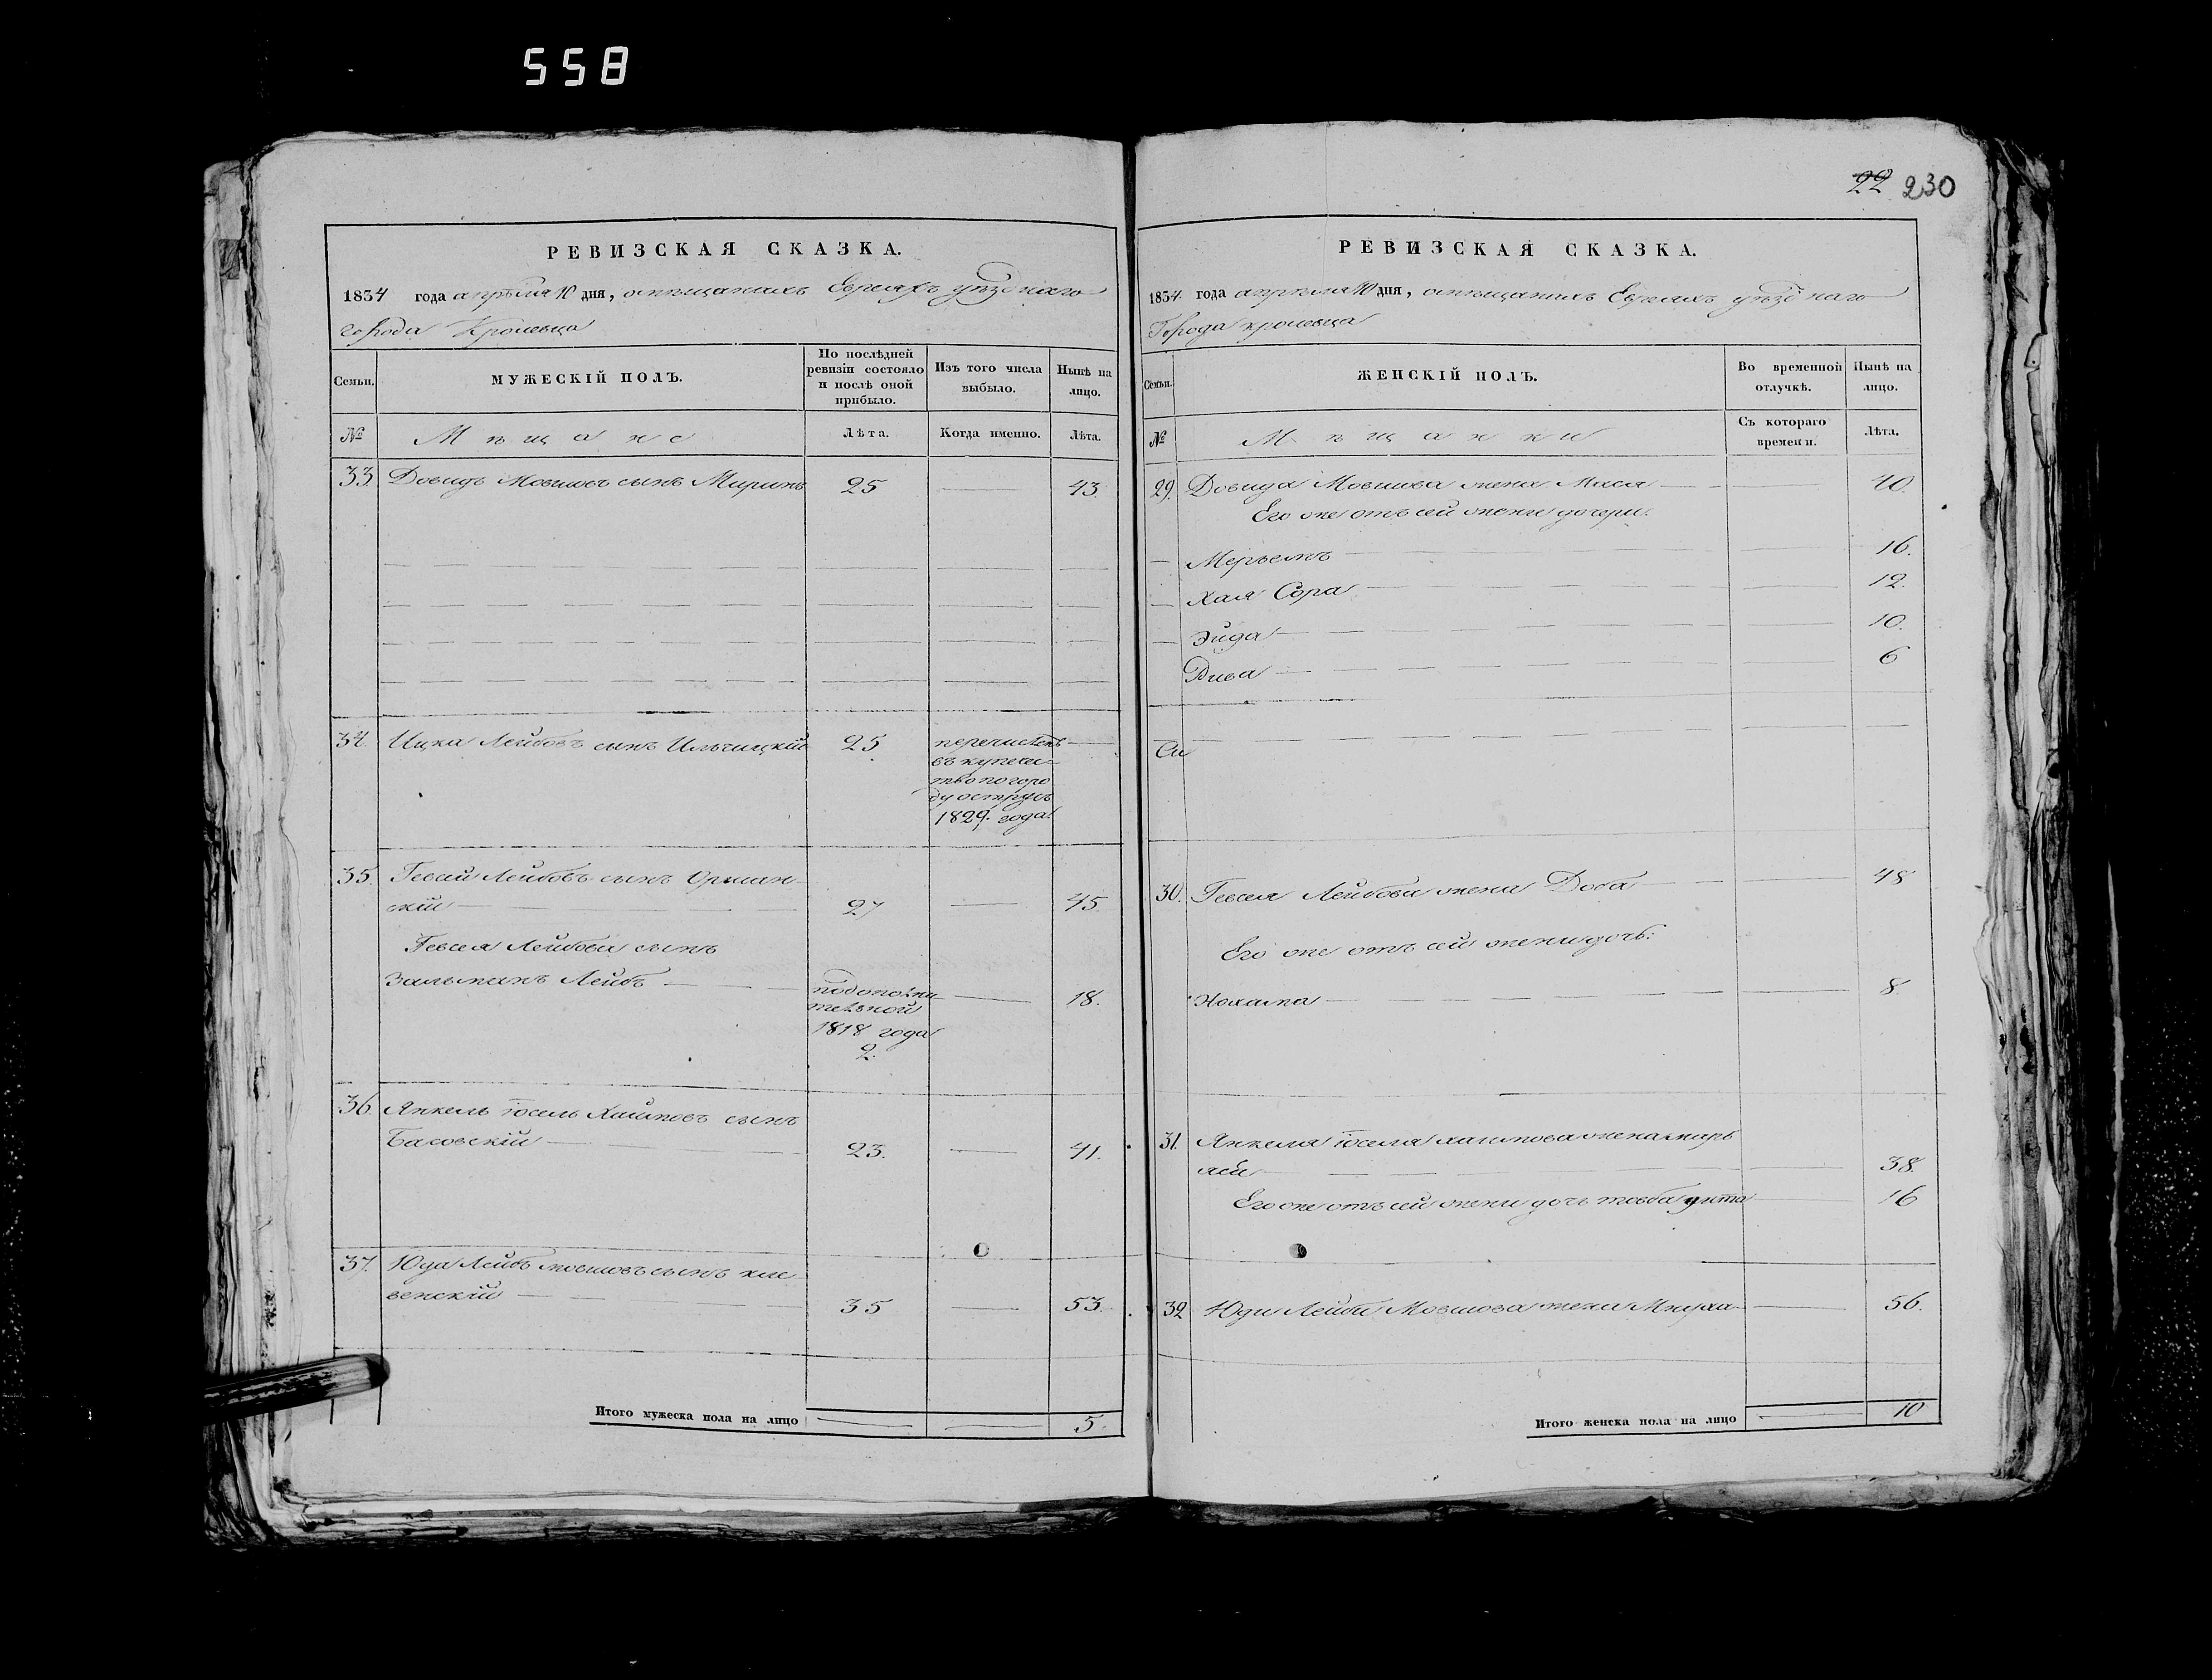 558
22 230
РЕВИЗСКАЯ СКАЗКА.
1834 года апрѣля 10 дня, омѣщанахъ Евреяхъ уѣзднаго
города Кролевца
Семьи.
МУЖЕСКІЙ ПОЛЪ.
По послѣдней ревизіи состояло и послѣ оной прибыло.
Изъ того числа выбыло.
Нынѣ на лицо.
№
Мѣщане
Лѣта.
Когда именно.
Лѣта.
33. Довидъ Мовшовъ сынъ Миринъ 25 43.
34. Ицка Лейбовъ сынъ Ильчицкій 25 перечисленъ
въ купече-
тво по горо
ду острусъ
1829. года
35. Гевсей Лейбовъ сынъ Орман-
скій 27 45.
Гевсея Лейбова сынъ
Зальманъ Лейбъ 18.
подополни-
тельной
1818 года
2.
36. Янкель Іосель Хаимовъ сынъ
Басовскій 23. 41.
37. Юда Лейбъ мовшовъ сынъ кле-
венскій 35 53.
Итого мужеска пола на лицо 5.
РЕВИЗСКАЯ СКАЗКА.
1834. года апрѣля 10 дня, омѣщанахъ Евреяхъ уѣзднаго
Города кролевца
Семьи.
ЖЕНСКІЙ ПОЛЪ.
Во временной отлучкѣ.
Нынѣ на лицо.
№
Мѣщанки
Съ котораго времени.
Лѣта.
29. Довида Мовшова жена Мася 40.
Его же отъ сей жены дочери:
Меръемъ 16.
Хая Сора 12.
Эйда 10.
Рива 6
30. Гевсея Лейбова жена Доба 48
Его же отъ сей жены дочь:
Нохама 8.
31. Янкеля Іоселя хаимова жена марь
яся 38.
Его же отъ сей жены дочь тевба 16
32 Юды Лейбы Мовшова жена Мнуха 56.
Итого женска пола на лицо 10